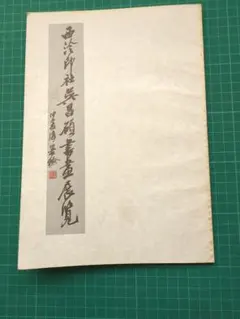 西泠印社吴昌碩書畫展覽